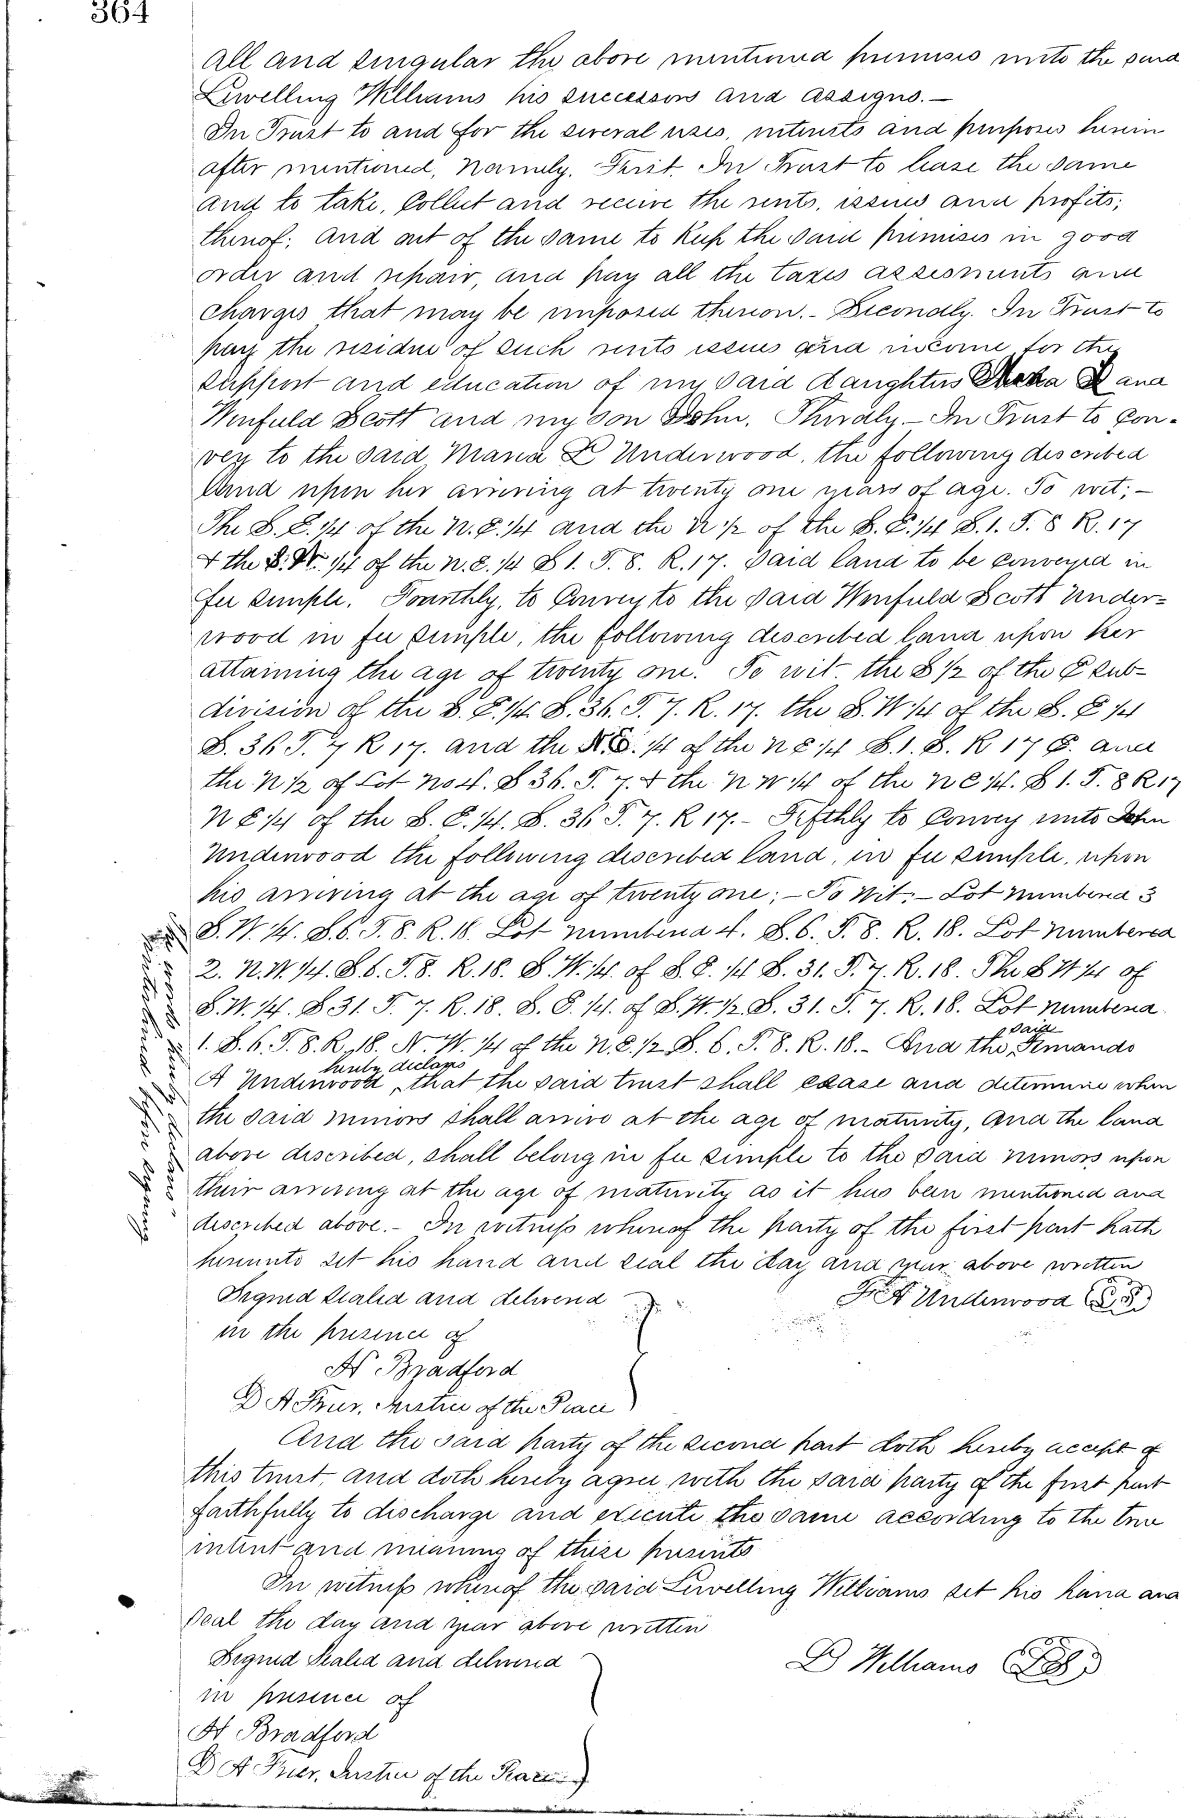 364
all and singular the above mentioned premises unto the said
Lewelling Williams his successors and assigns.—
In Trust to and for the several uses, interests and purposes herein
after mentioned, Namely. First. In Trust to lease the same
and to take, Collect and receive the rents, issues and profits;
thereof; and out of the same to Keep the said premises in good
order and repair, and pay all the taxes assessments and
charges that may be imposed thereon.- Secondly. In Trust to
pay the residue of such rents issues and income for the
support and education of my said daughters and
Winfield Scott and my son John. Thirdly- In Trust to Con-
vey to the said Maria L Underwood, the following described
land upon her arriving at twenty one years of age. To wit;-
The S. E. 1/4 of the N. E. 1/4 and the N 1/2 of the S. E. 1/4 S. 1. T. 8 R. 17
& the S. W. 1/4 of the N. E. 1/4 S 1. T. 8. R. 17. Said land to be conveyed in
fee simple. Fourthly, to Convey to the said Winfield Scott Under=
wood in fee simple, the following described land upon her
attaining the age of twenty one. To wit the S 1/2 of the E sub-
division of the S. E. 1/4 S. 36. T. 7. R. 17. the S. W 1/4 of the S. E 1/4
S. 36 T. 7 R 17. and the N. E. 1/4 of the N E 1/4 S. 1. 8. R 17 and
the N 1/2 of Lot No 4. S 36. T. 7. & the N W 1/4 of the N E 1/4. S 1. T. 8 R 17
N E 1/4 of the S. E. 1/4. S. 36 T. 7. R 17.- Fifthly to Convey unto John
Underwood the following described land, in fee simple, upon
his arriving at the age of twenty one; - To Wit; - Lot Numbered 3
S. W. 1/4. S. 6. T. 8. R. 18. Lot Numbered 4. S. 6. T. 8. R. 18. Lot Numbered
2. N. W. 1/4. S. 6. T. 8. R. 18. S. W. 1/4. of S. E. 1/4 S. 31. T. 7. R. 18. The S W 1/4 of
S. W. 1/4. S 31. T. 7. R. 18. S. E. 1/4. of S. W. 1/2. S. 31. T. 7. R. 18. Lot Numbered
1. S. 6. T. 8. R. 18. N. W. 1/4 of the N. E. 1/2 S. 6. T. 8. R. 18.- And the said Fernando
A Underwood hereby declares that the said trust shall cease and determine when
the said minors shall arrive at the age of maturity, and the land
above described, shall belong in fee simple to the said minors upon
their arriving at the age of maturity as it has been mentioned and
described above.- In witness whereof the party of the first part hath
hereunto set his hand and seal the day and year above written
Signed sealed and delivered
F A Underwood
in the presence of
H Bradford
D A Frier, Justice of the Peace
The words "hereby declares"
interlined before signing
And the said party of the second part doth hereby accept of
this trust and doth hereby agree with the said party of the first part
faithfully to discharge and execute the same according to the true
intent and meaning of these presents
In witness whereof the said Lewelling Williams set his hand and
seal the day and year above written
Signed Sealed and delivered
L Williams
in presence of
H Bradford
D A Frier, Justice of the Peace